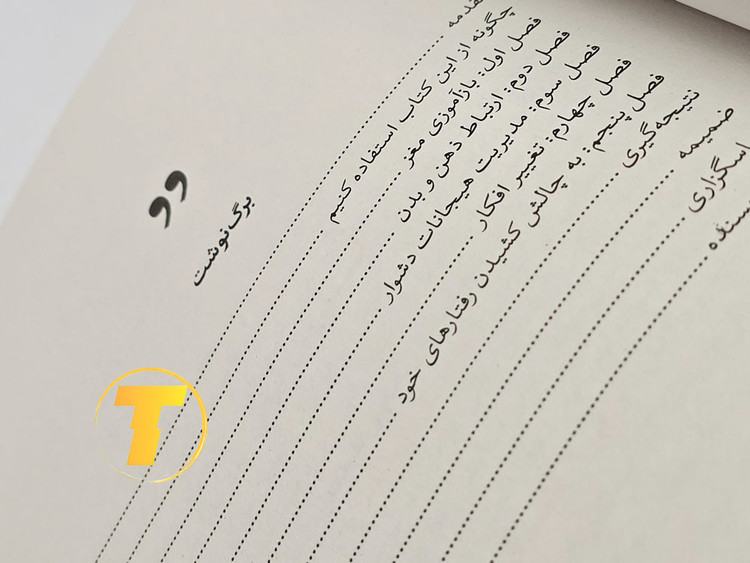 برگ‌نوشت
چگونه از این کتاب استفاده کنیم
فصل اول: بازآموزی مغز
فصل دوم: ارتباط ذهن و بدن
فصل سوم: مدیریت هیجانات دشوار
فصل چهارم: تغییر افکار
فصل پنجم: به چالش کشیدن رفتارهای خود
نتیجه‌گیری
ضمیمه
T